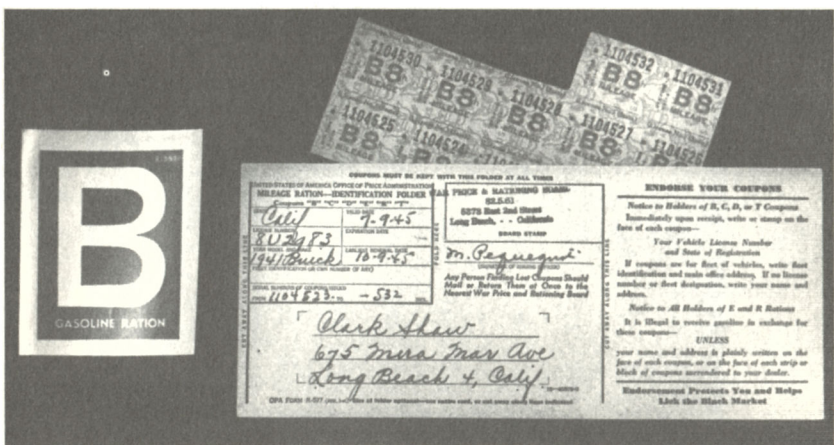 B
GASOLINE RATION
1104530
B8
MILEAGE
1104529
B8
1104528
B8
1104527
1104532
B8
MILEAGE
1104531
B8
1104525
B8
1104524
1104526
COUPONS MUST BE KEPT WITH THIS FOLDER AT ALL TIMES
UNITED STATES OF AMERICA OFFICE OF PRICE ADMINISTRATION
MILEAGE RATION—IDENTIFICATION FOLDER
Coupons "B" "C" "D" "E" "R" "T"
Calif
VALID DATE
7-9-45
LICENSE NUMBER
8U2983
EXPIRATION DATE
1941 Buick
EARLIEST RENEWAL DATE
10-9-45
SERIAL NUMBERS OF COUPONS ISSUED
FROM 1104523- TO -532 INCL.
WAR PRICE & RATIONING BOARD
5373 East 2nd Street
Long Beach, - - California
BOARD STAMP
M. Pequegnat
Any Person Finding Lost Coupons Should
Mail or Return Them at Once to the
Nearest War Price and Rationing Board
Clark Shaw
675 Mira Mar Ave
Long Beach 4, Calif.
CUT AWAY ALONG THIS LINE
FOLD HERE
CUT AWAY ALONG THIS LINE
ENDORSE YOUR COUPONS
Notice to Holders of B, C, D, or T Coupons
Immediately upon receipt, write or stamp on the
face of each coupon—
Your Vehicle License Number
and State of Registration
If coupons are for fleet of vehicles, write fleet
identification and main office address. If no license
number or fleet designation, write your name and
address.
Notice to All Holders of E and R Rations
It is illegal to receive gasoline in exchange for
these coupons—
UNLESS
your name and address is plainly written on the
face of each coupon, or on the face of each strip or
block of coupons surrendered to your dealer.
Endorsement Protects You and Helps
Lick the Black Market